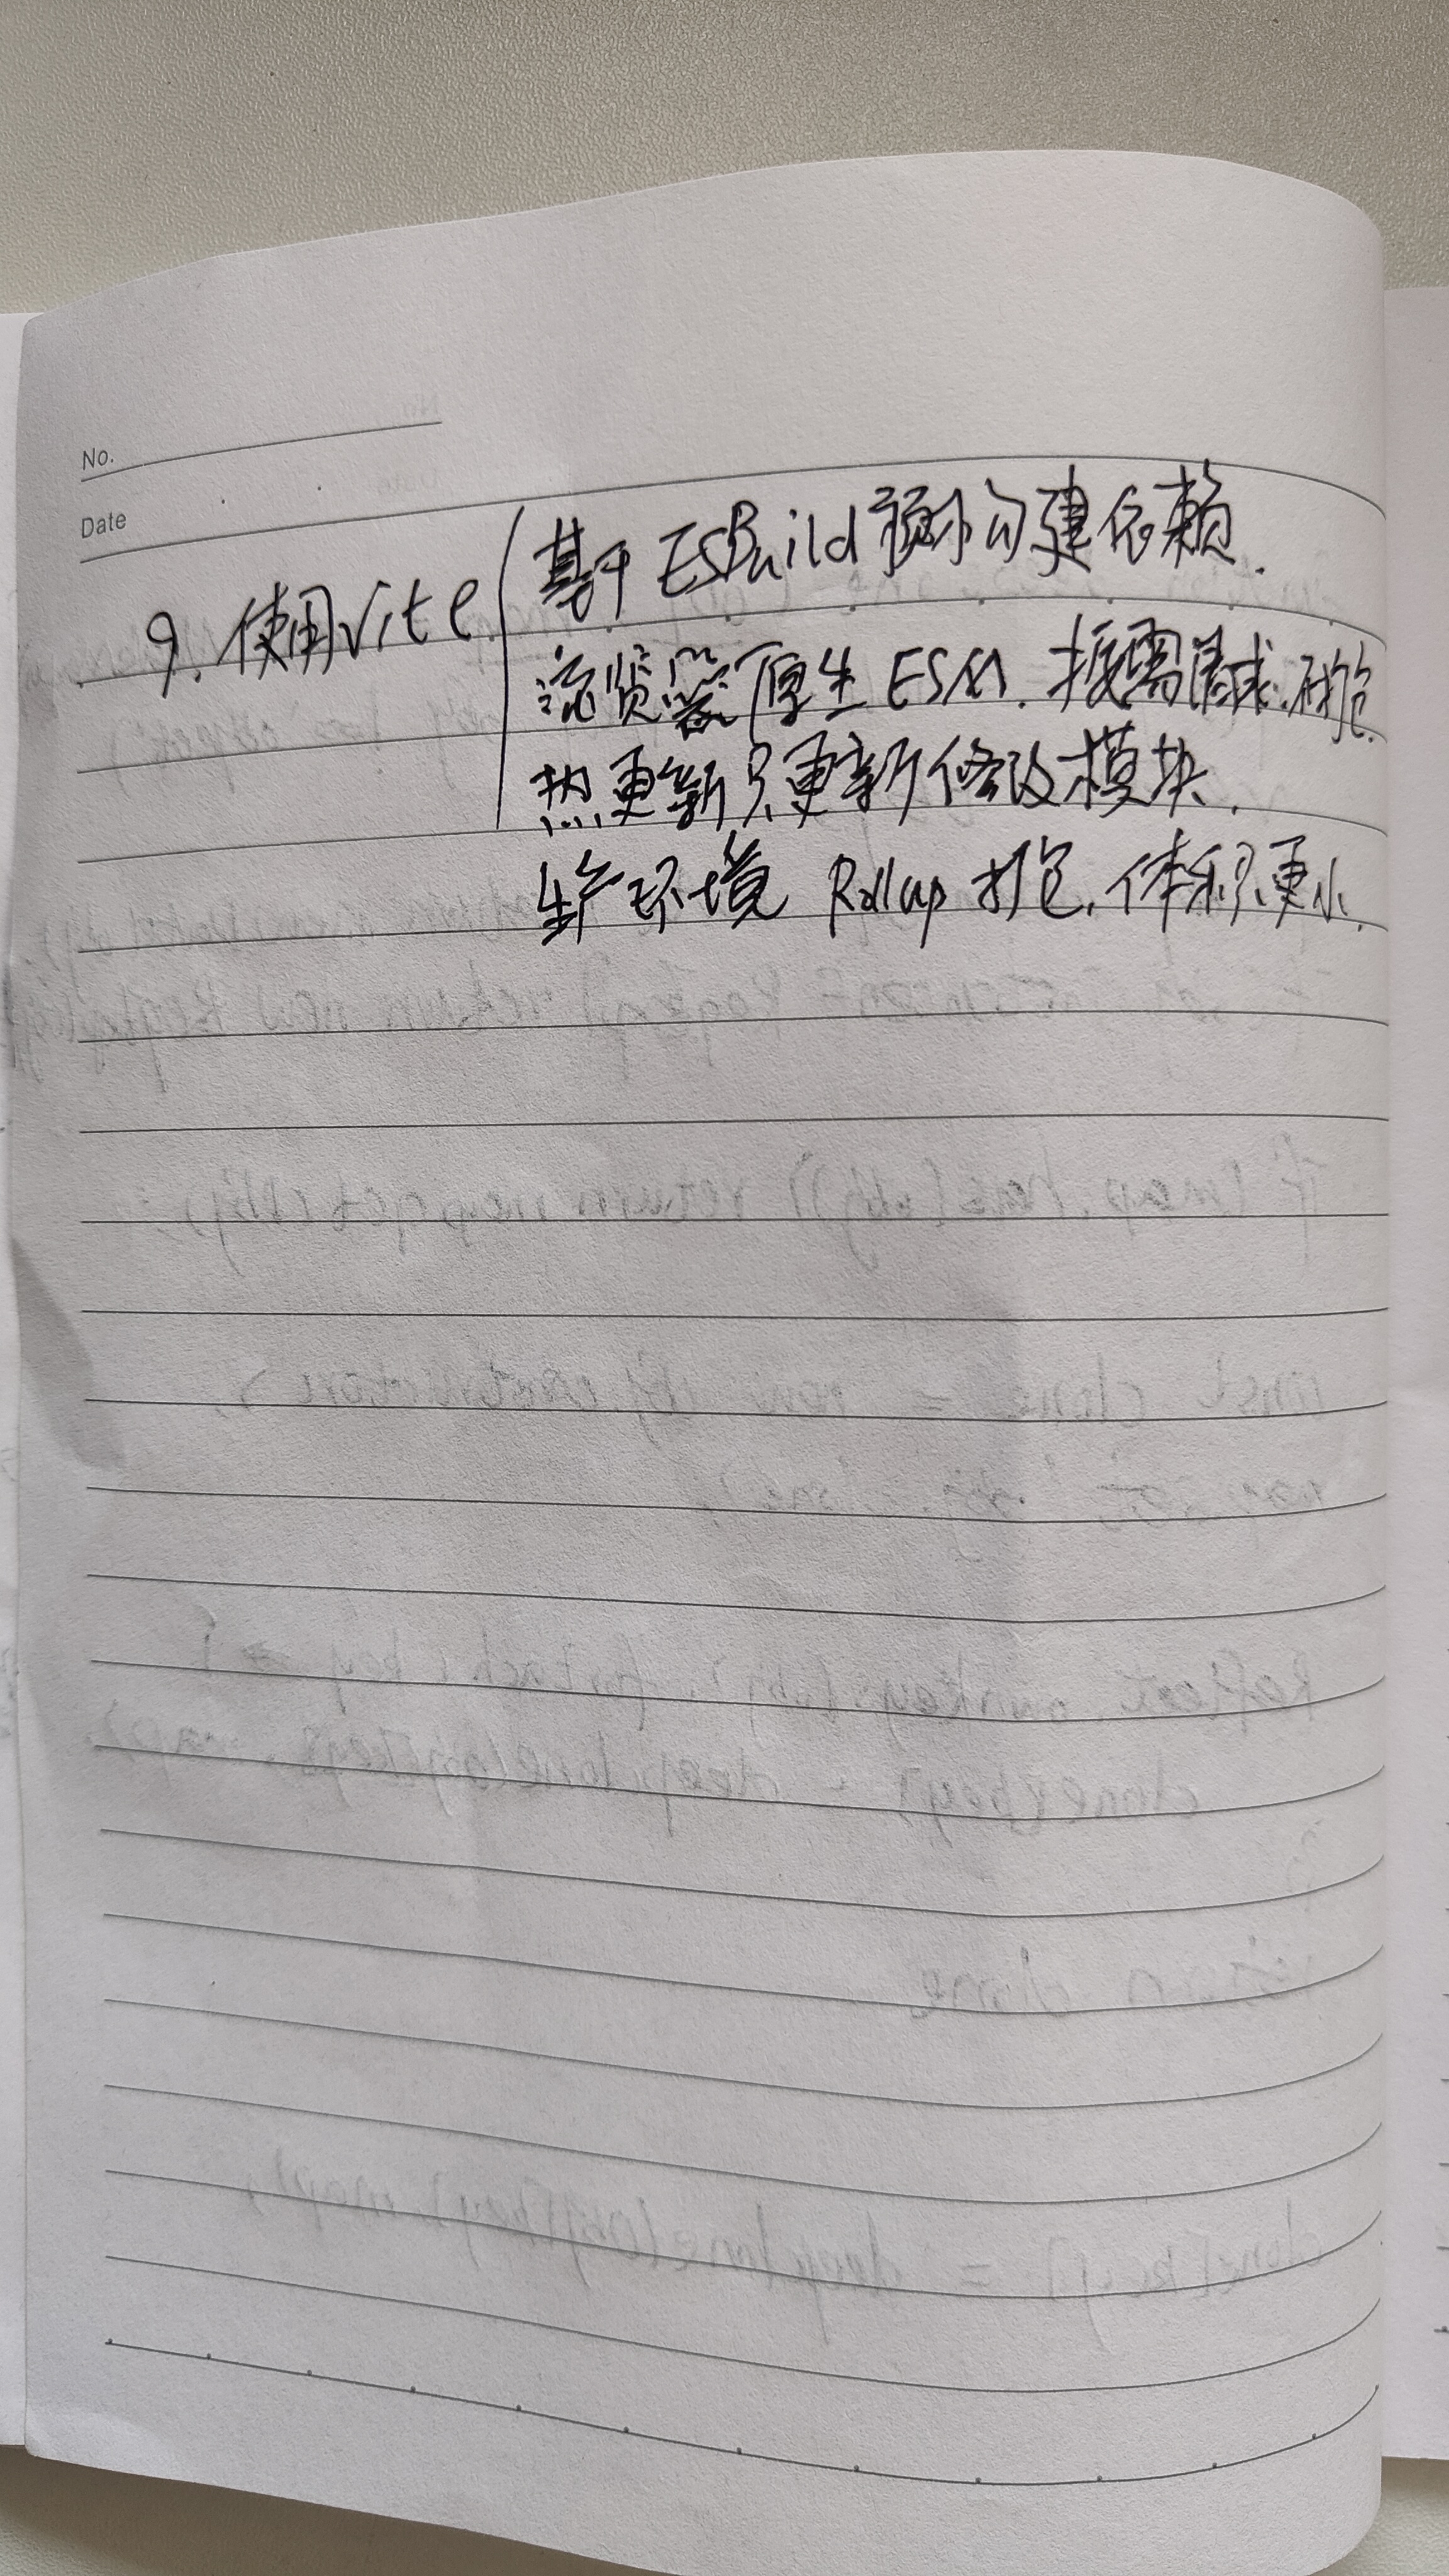 No.
Date
9. 使用Vite
基于 ESBuild 预构建依赖.
浏览器原生 ESM. 按需请求.
热更新只更新修改模块.
生产环境 Rollup 打包. 体积更小.